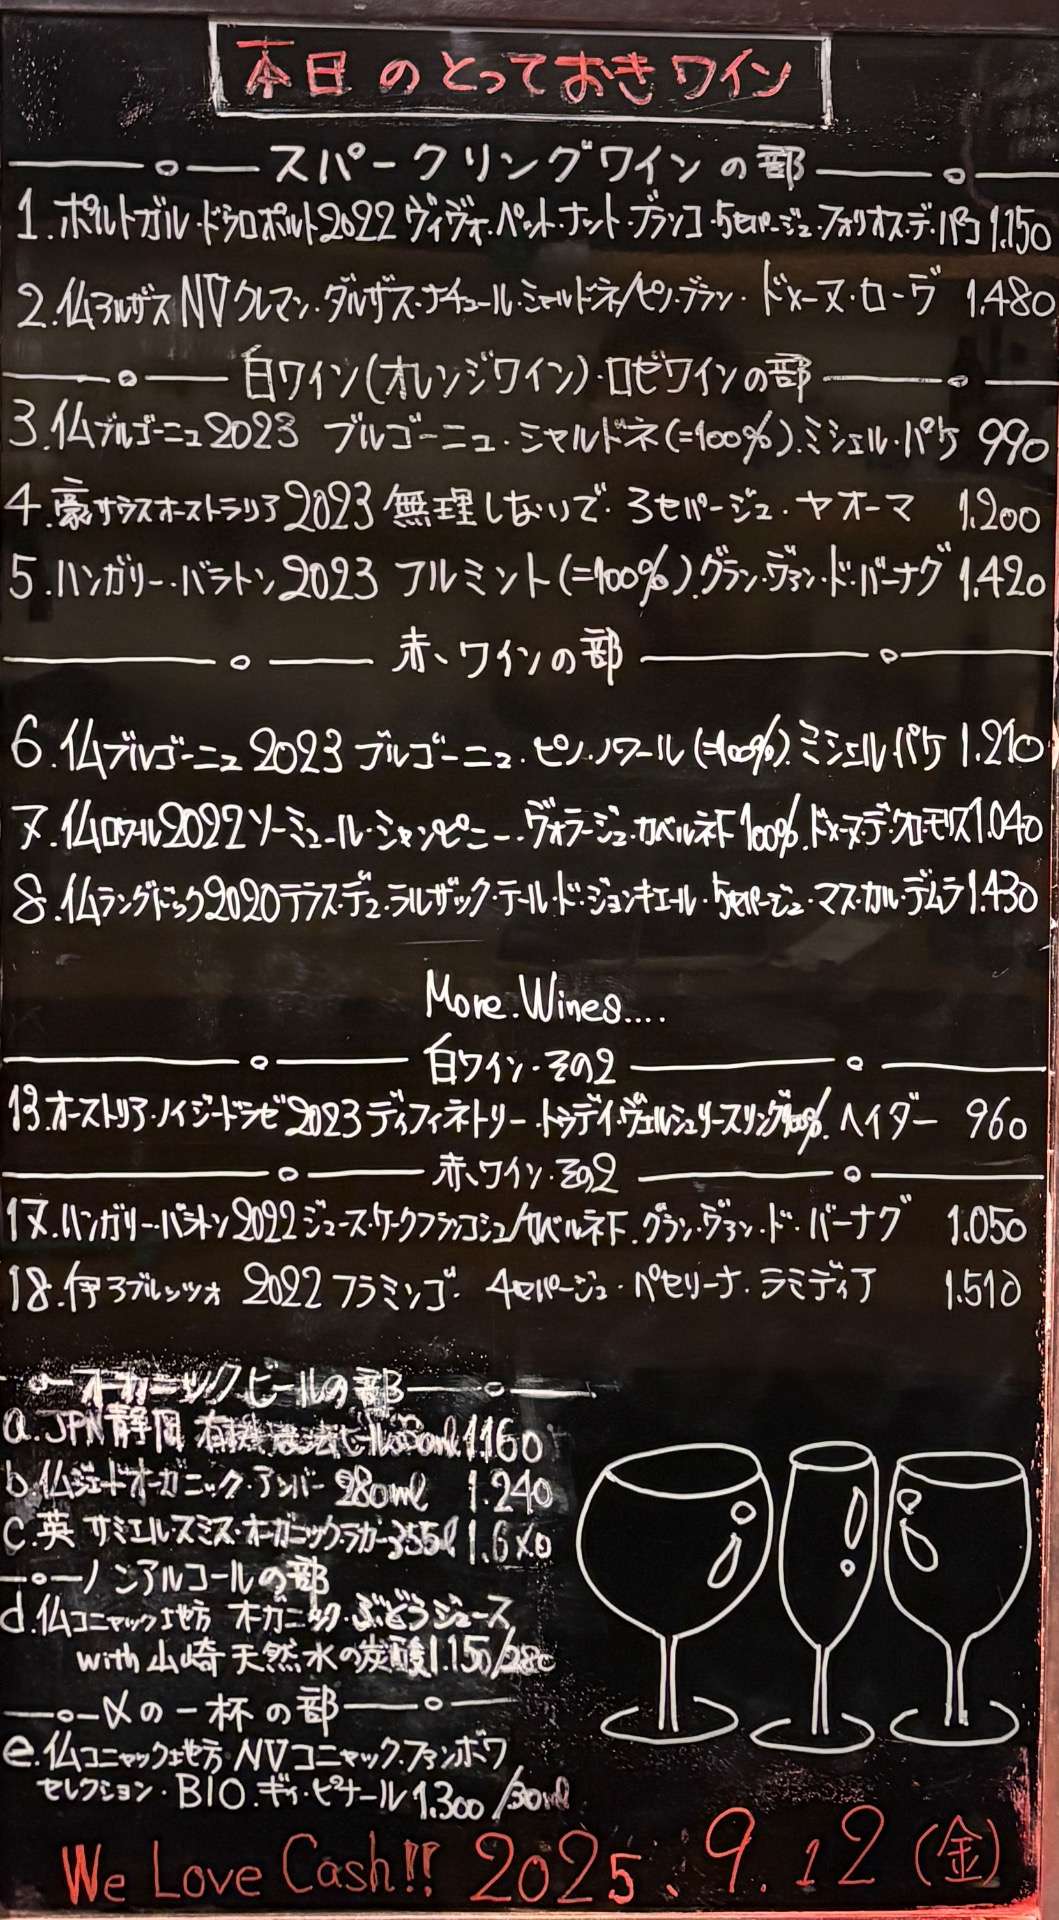 本日のとっておきワイン
スパークリングワインの部
1.ポルトガル・ドウロポルト2022 ヴィヴィ・ペット・ナット・ブランコ・5セパージュ・フォリオス・デ・バコ 1.150
2.仏アルザス NV クレマン・ダルザス・ナチュール・シャルドネ/ピノ・ブラン・ドメーヌ・ローヴ 1.480
白ワイン(オレンジワイン)・ロゼワインの部
3.仏ブルゴーニュ2023 ブルゴーニュ・シャルドネ(=100%).ミシェル・パケ 990
4.豪サウスオーストラリア2023 無理しないで・3セパージュ・ヤオーマ 1.200
5.ハンガリー・バラトン2023 フルミント(=100%).グラン・ヴァン・ド・バーナグ 1.420
赤ワインの部
6.仏ブルゴーニュ2023 ブルゴーニュ・ピノ・ノワール(=100%).ミシェルパケ 1.210
7.仏ロワール2022 ソーミュール・シャンピニー・ヴォラージュ・カベルネF 100%.ドメーヌ・デ・クロ・モリス 1.040
8.仏ラングドック2020 テラス・デュ・ラルザック・テール・ド・ジョンキエール・5セパージュ・マス・カル・デムラ 1.430
More.Wines....
白ワイン・その2
13.オーストリア・ノイジードラゼ2023 ディフィネトリー・トゥデイ・ヴェルシュリースリング100%.ヘイダー 960
赤ワイン・その2
17.ハンガリー・バラトン2022 ジュース・ケークフランコシュ/カベルネF.グラン・ヴァン・ド・バーナグ 1.050
18.伊アブルッツォ 2022 フラミンゴ・4セパージュ・ペセリーナ・ラミディア 1.510
オーガニックビールの部
a.JPN静岡 有機 1.160
b.仏ジェードオーガニック・アンバー 280ml 1.240
c.英 サミエルスミス・オーガニック・ラガー355l
ノンアルコールの部
d.仏コニャック地方 オーガニック・ぶどうジュース
with 山崎天然水の炭酸 1.150/280
〆の一杯の部
e.仏コニャック地方・NVコニャック・ファンボワ
セレクション・BIO.ギィ・ピナール 1.300/30ml
We Love Cash!! 2025.9.12(金)